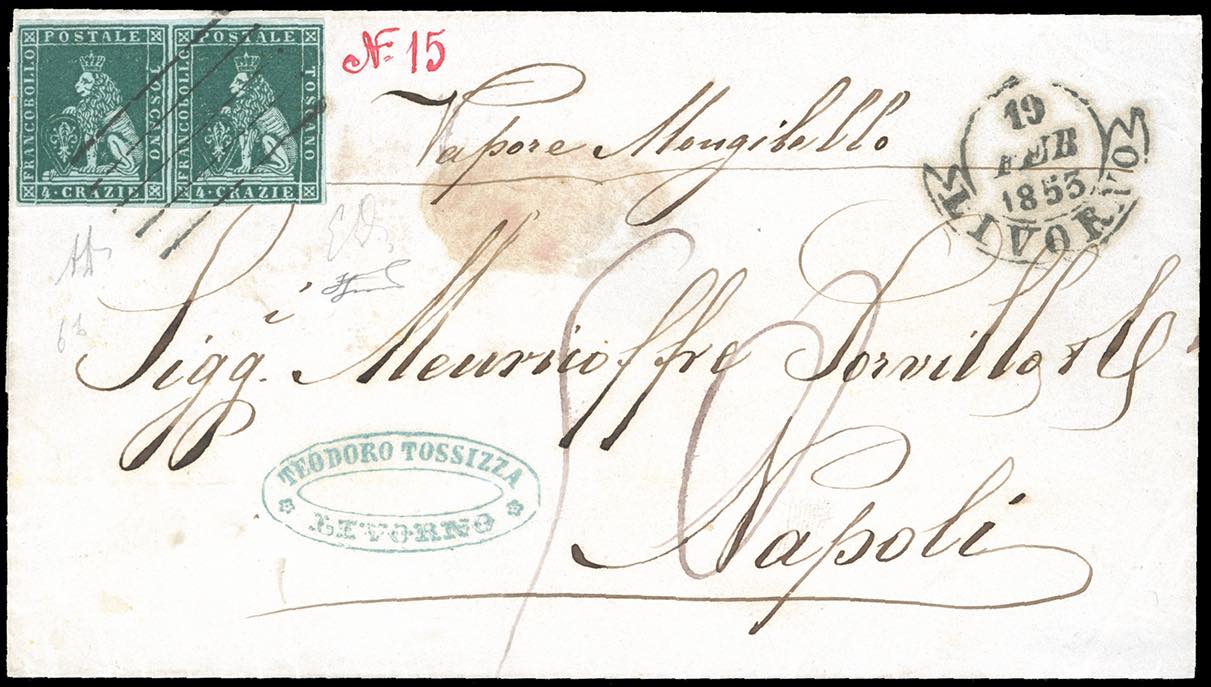 FRANCOBOLLO POSTALE TOSCANO
4·CRAZIE
FRANCOBOLLO POSTALE TOSCANO
4·CRAZIE
№ 15
Vapore Mongibello
19
FEB
1853
LIVORNO
Sigg.i Meuricoffre Sorvillo & C
TEODORO TOSSIZZA
LIVORNO
Napoli